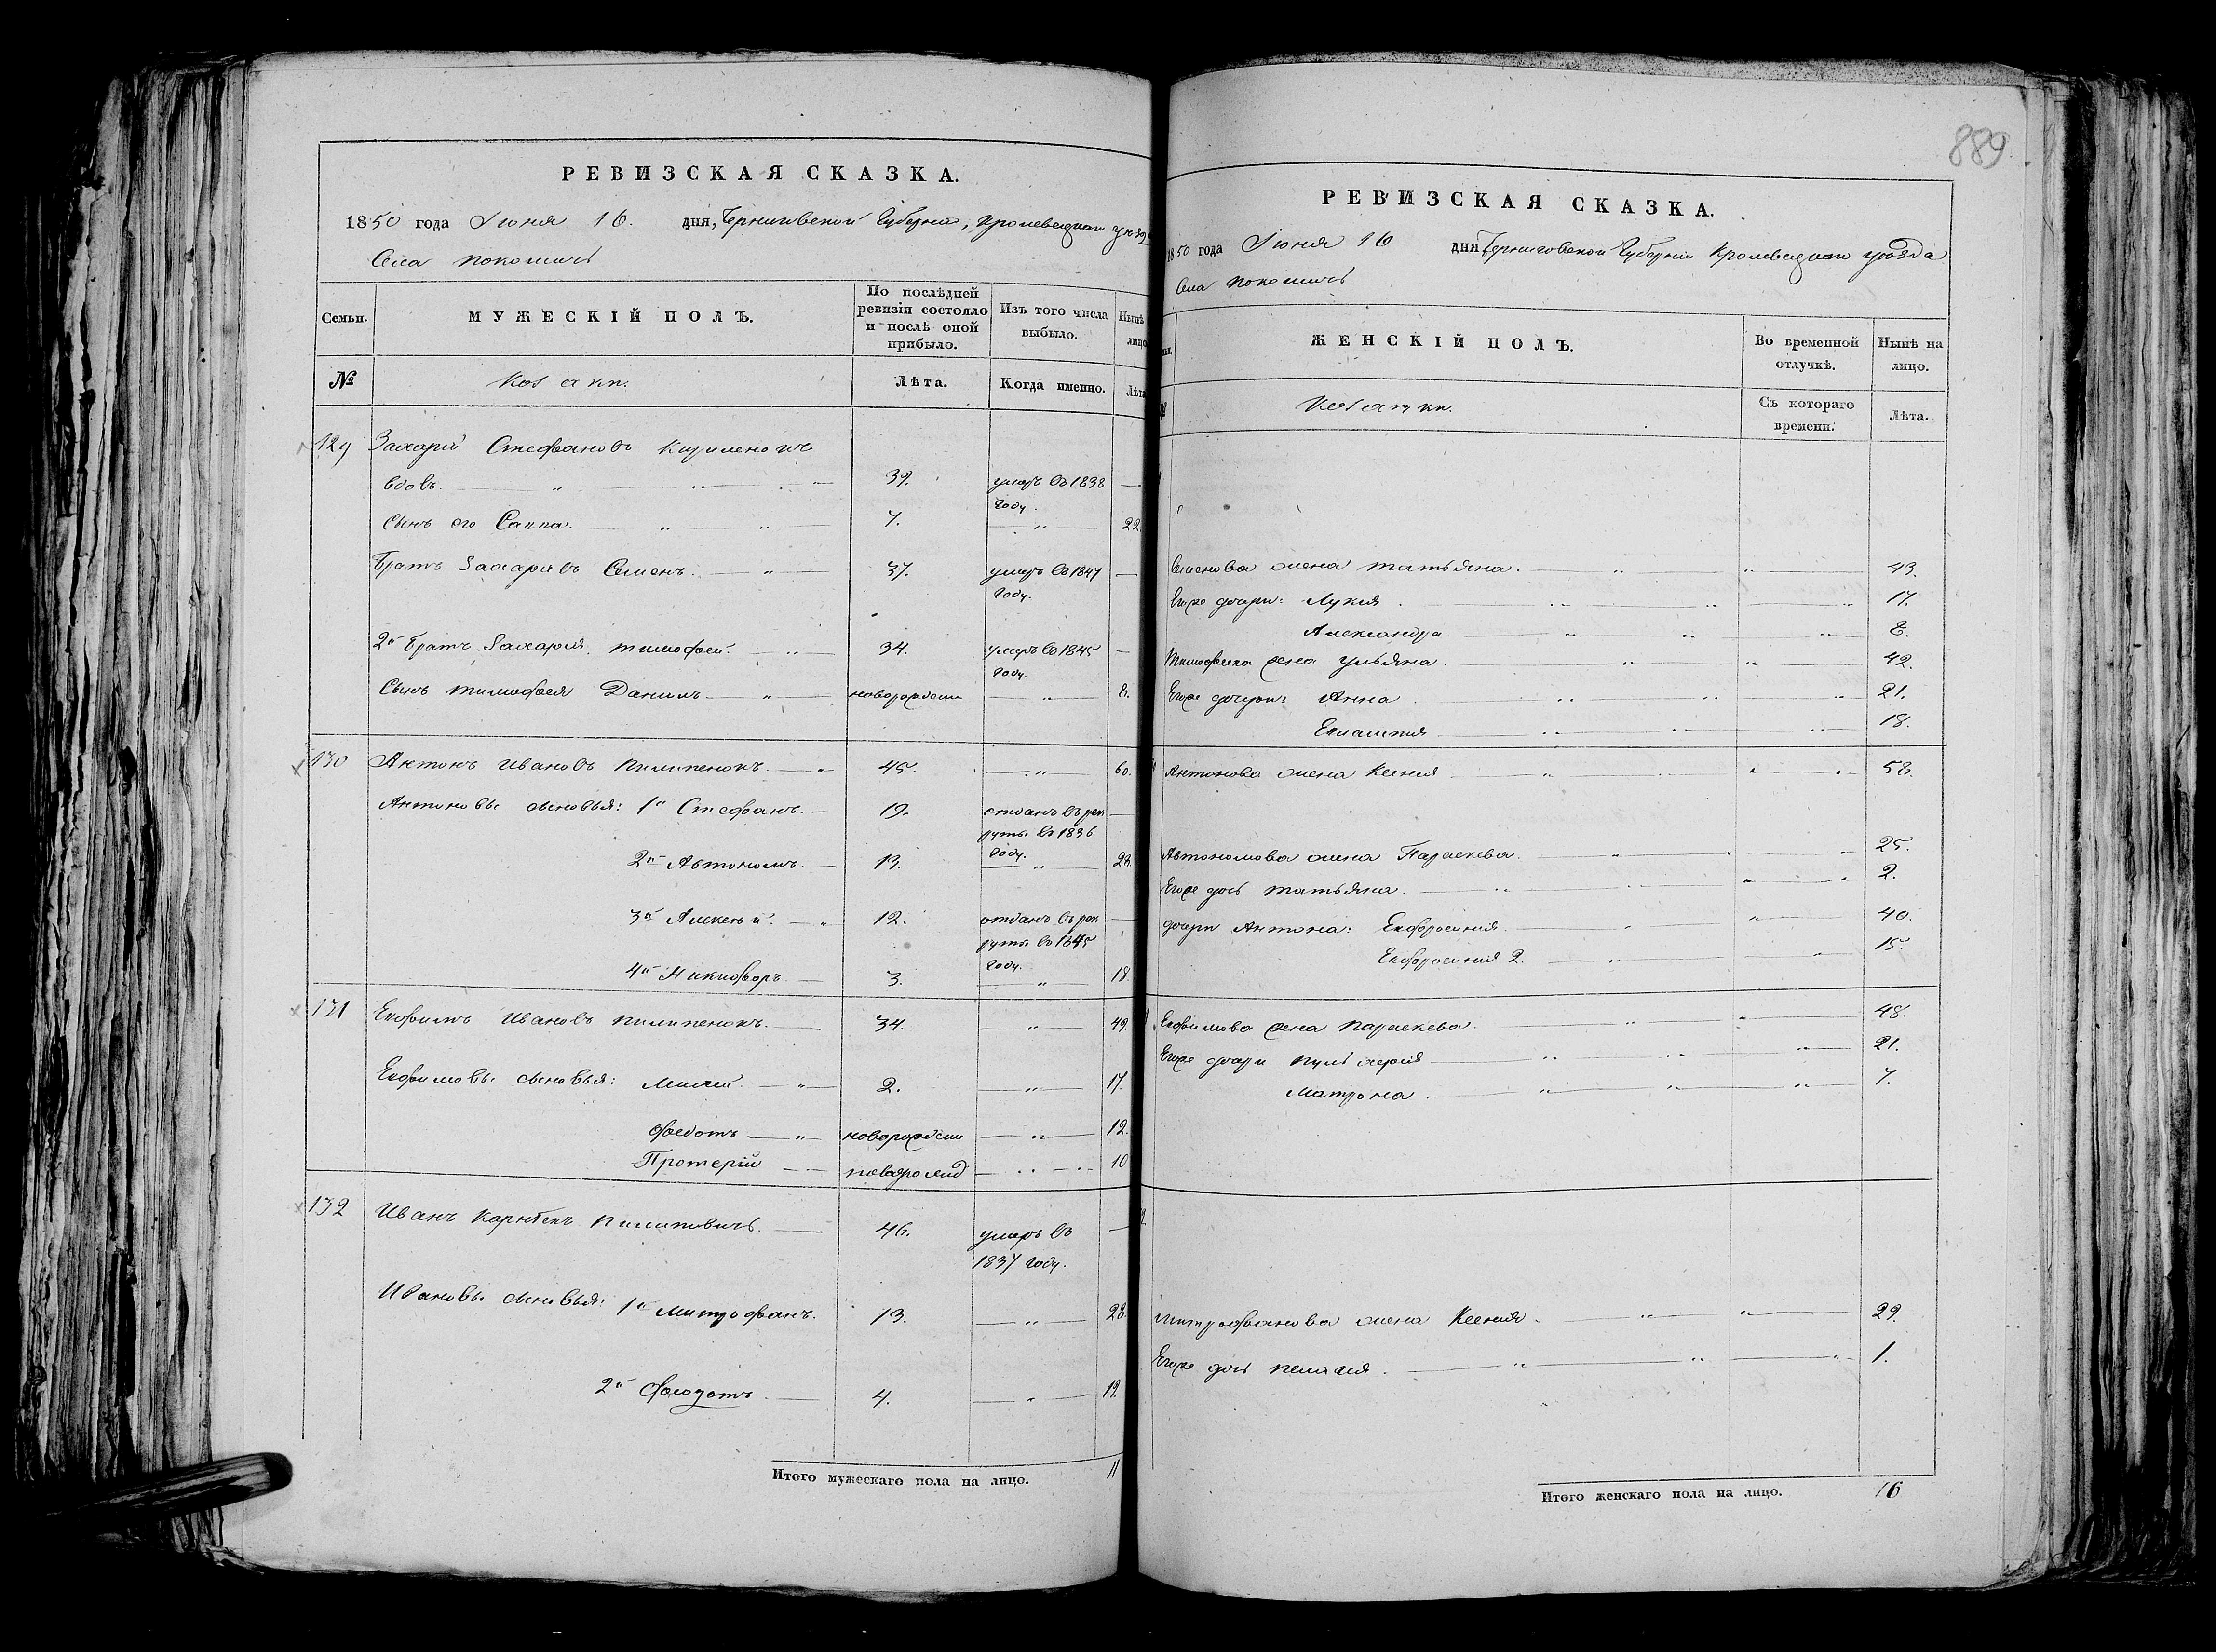 РЕВИЗСКАЯ СКАЗКА.
1850 года Іюня 16. дня, Черниговской Губерніи, Кролевецкаго уѣзд
Села Покошичь
Семьи.
МУЖЕСКІЙ ПОЛЪ.
По послѣдней ревизіи состояло и послѣ оной прибыло.
Изъ того числа выбыло.
Нынѣ лицо
№
Козаки.
Лѣта.
Когда именно.
Лѣта
129 Захарій Стефановъ
вдовъ. 39. умеръ въ 1838 году.
Сынъ его Саппа. 7. 22.
Братъ Захаріевъ Семенъ. 37. умеръ въ 1847 году.
2й Братъ Захарія Тимофей. 34. умеръ въ 1845 году.
Сынъ Тимофея Данилъ новорожден 8.
130 Антонъ Ивановъ Пилипенокъ. 45. 60.
Антоновы сыновья: 1й Стефанъ. 19. отданъ въ рекруты въ 1836 году.
2й Автономъ. 13. 28.
3й Алексѣй. 12. отданъ въ рекруты въ 1845 году.
4й Никифоръ 3. 18.
131 Евфимъ Ивановъ Пилипенокъ. 34. 49.
Евфимовы сыновья: 2. 17.
Федотъ новорожден 12.
Протерій новорожд 10
132 Иванъ Пилиповичь. 46. умеръ въ 1837 году.
Ивановы сыновья: 1й Митрофанъ. 13. 28.
2й Федотъ. 4. 19.
Итого мужескаго пола на лицо. 11
889
РЕВИЗСКАЯ СКАЗКА.
1850 года Іюня 16 дня Черниговской Губерніи Кролевецкаго уѣзда
Села Покошичь
ЖЕНСКІЙ ПОЛЪ.
Во временной отлучкѣ.
Нынѣ на лицо.
Козачки.
Съ котораго времени.
Лѣта.
Семенова жена Татьяна. 43.
Егоже дочери: Лукия 17.
Александра 8.
Тимофеева жена Ульяна. 42.
Егоже дочери: Анна 21.
18.
Антонова жена Ксения 58.
Автономова жена Параскева. 25.
Егоже дочь Татьяна. 2.
дочери Антона: Евфросиния 40.
Евфросиния 2. 15.
Евфимова жена Параскева. 48.
Егоже дочери 21.
Матрона 7.
Митрофанова жена Ксения. 29.
Егоже дочь Пелагия. 1.
Итого женскаго пола на лицо. 16